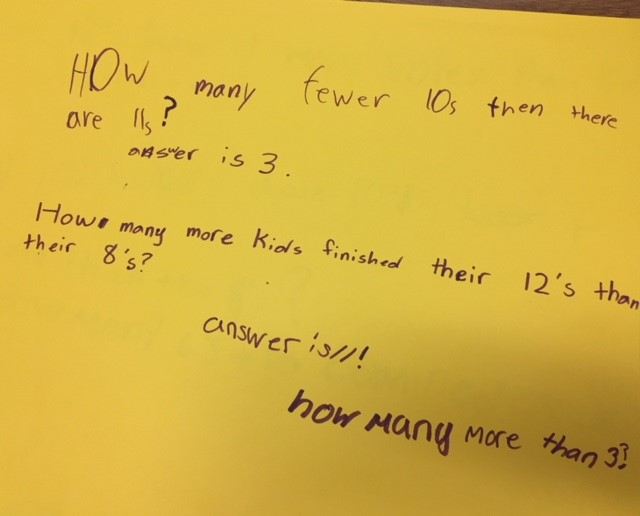 HOw many fewer 10s then there
are 11s?
answer is 3.
How many more Kids finished their 12's than
their 8's?
answer is 11!
how many more than 3?